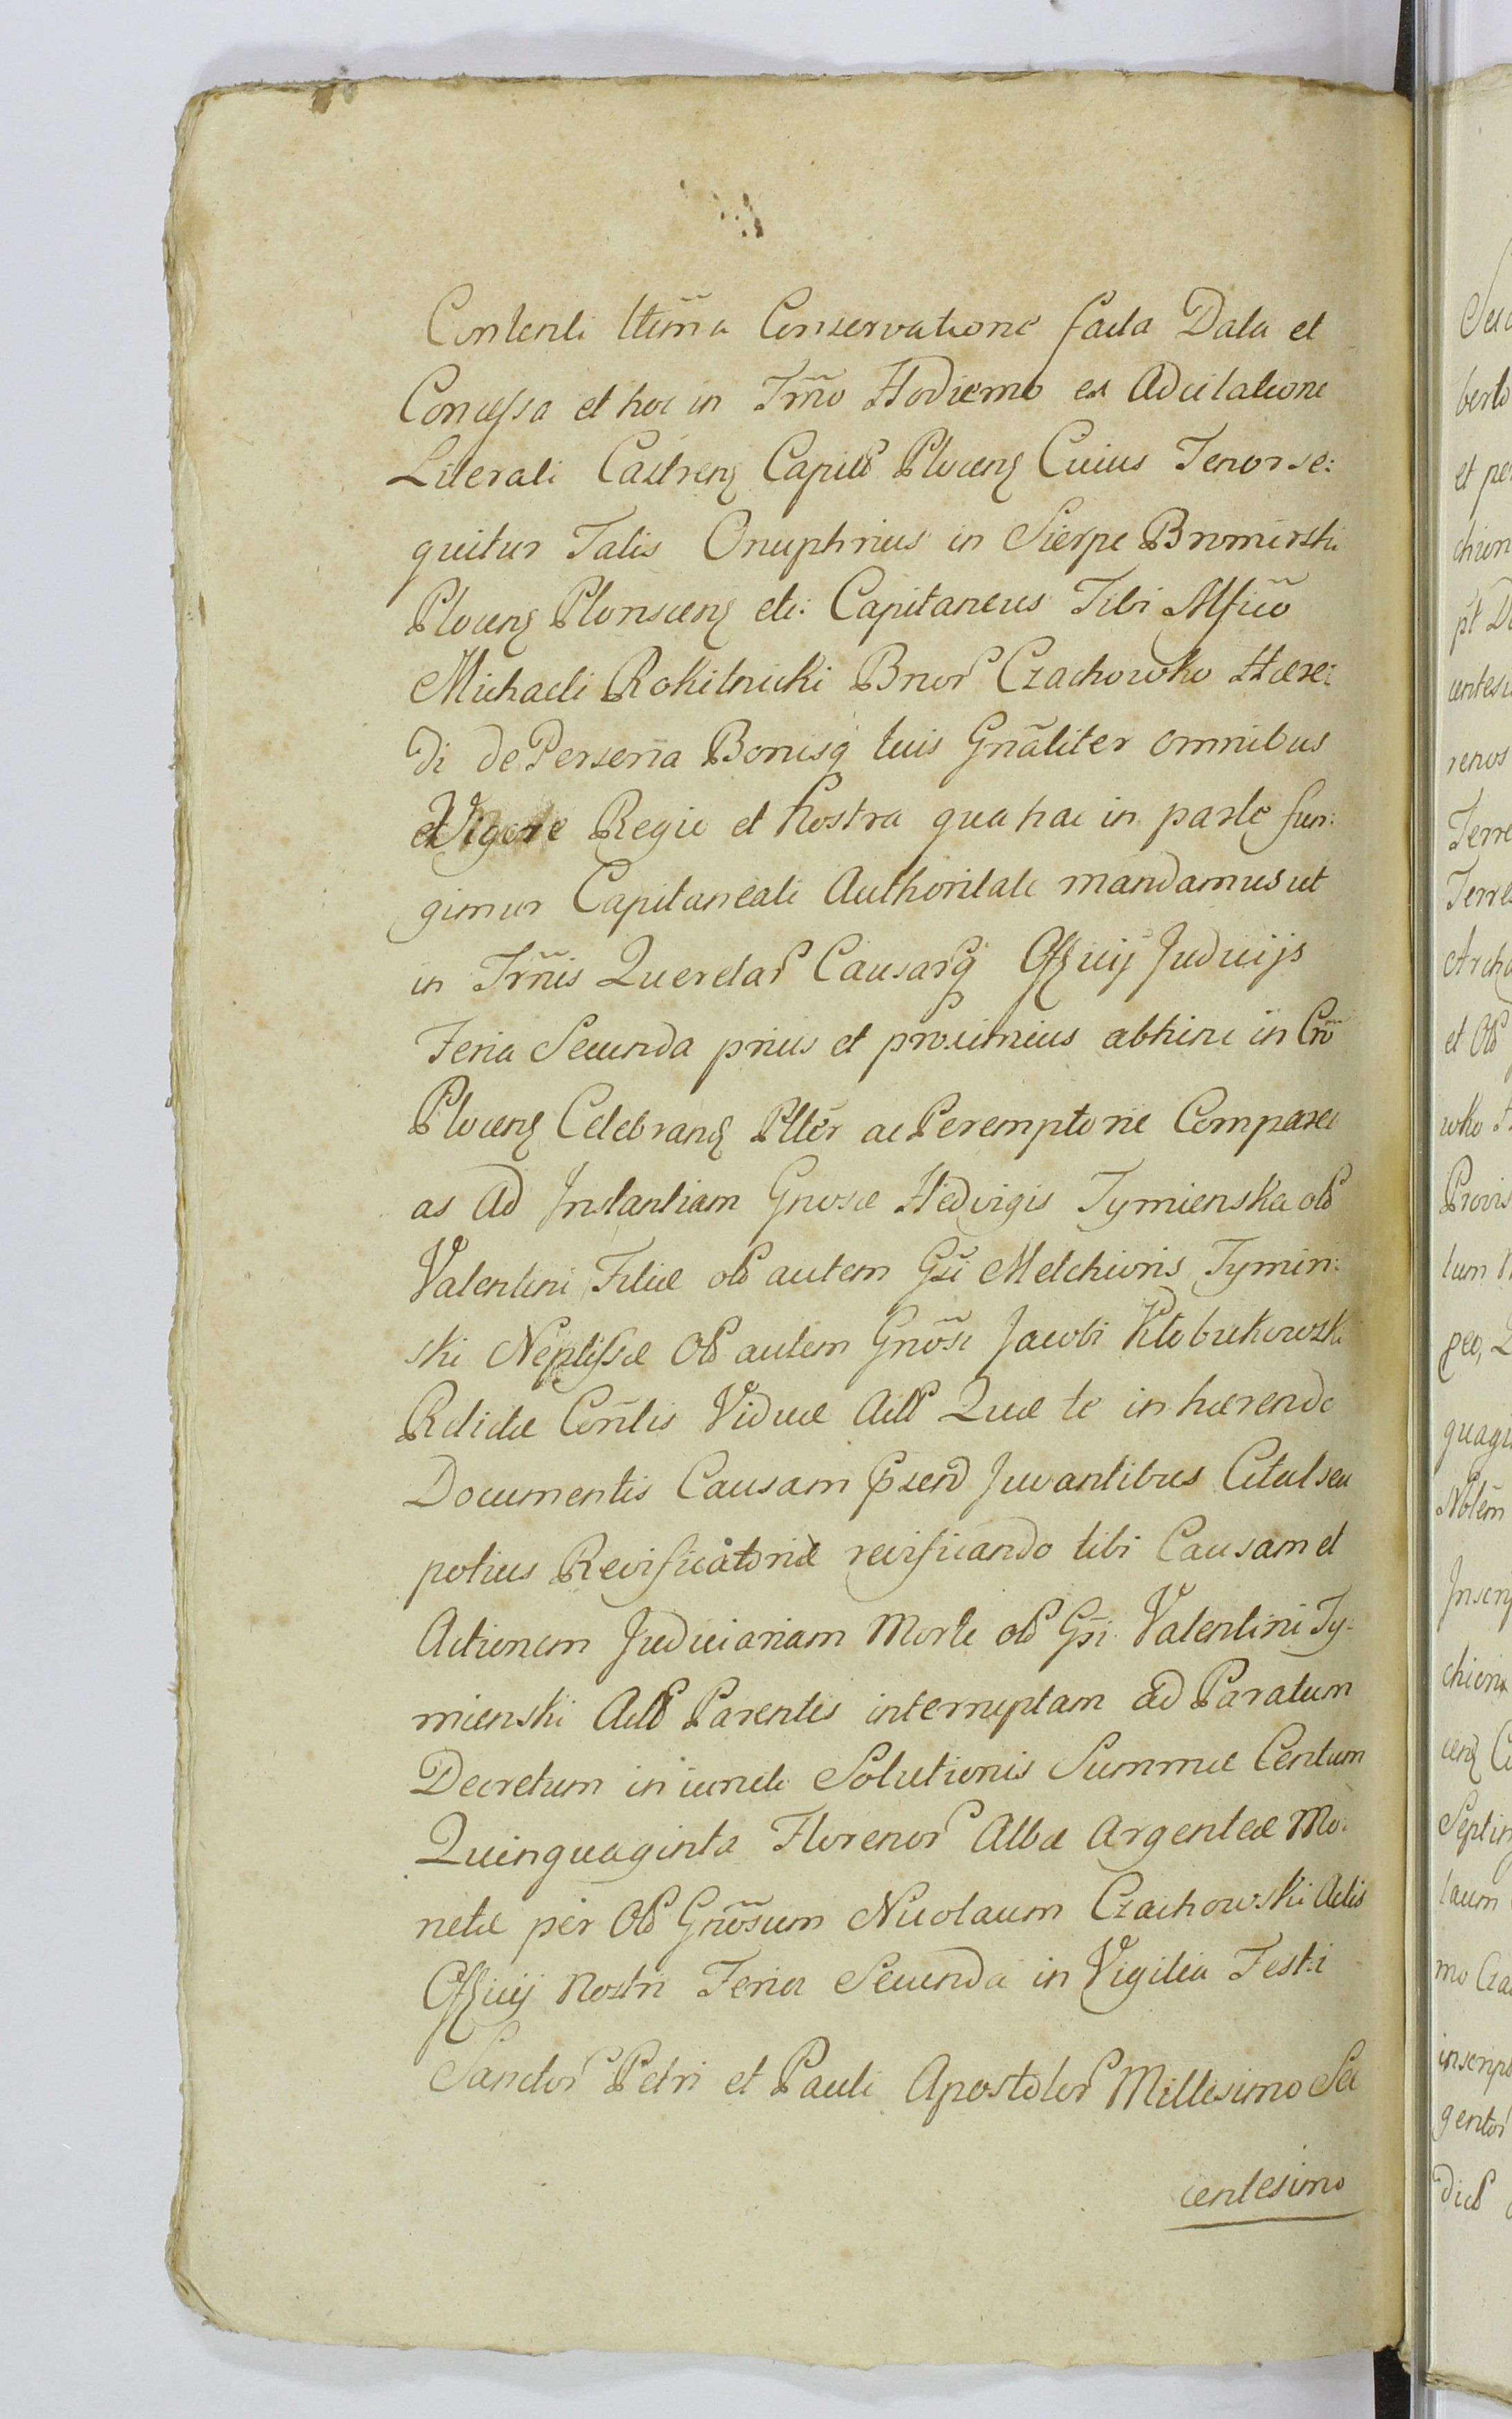 Contenti ttm̃a Conservatione facta Data et
Concessa et hoc in Tm̃o Hodierno ex Adcitatione
Literali Castrenſ Capitlĩ Plocenſ Cuius Tenor se:
quitur Talis Onuphrius in Sierpc Bromirski
Plocenſ Plonscenſ etc: Capitaneus Tibi Mfico
Michaeli Rokitnicki Bnor Czachowko Hære:
di de Persona Bonisq tuis Gnãliter omnibus
et Vigore Regia et Nostra qua hac in parte fun:
gimur Capitaneali Authoritate mandamus ut
in Trm̃is Querelar Causarq Officij Judicijs
Feria Secunda prius et proximius abhinc in Cro
Plocenſ Celebranđ Pltẽr ac Peremptorie Compare
as Ad Instantiam Gnosæ Hedvigis Tymienska olб
Valentini Filiæ olб autem Gsi Melchioris Tymin:
ski Neptissæ Olб autem Gnõsi Jacobi Kłobukowski
Relictæ Con̄tis Viduæ Actб Quæ te in hærendo
Documentis Causam pſenđ Juvantibus Citat seu
potius Reviſicatoriæ revificando tibi Causam et
Actionem Judiciariam Morte olб Gsi Valentini Ty-
mienski Actб Parentis interruptam ad Paratum
Decretum in iuncte Solutionis Summæ Centum
Quinquaginta Florenor Albæ Argenteæ Mo:
netæ per Olб Gnõsum Nicolaum Czachowski Actis
Officij Nostri Feria Secunda in Vigilia Festi
Sanctor Petri et Pauli Apostolor Millesimo Sex
centesimo